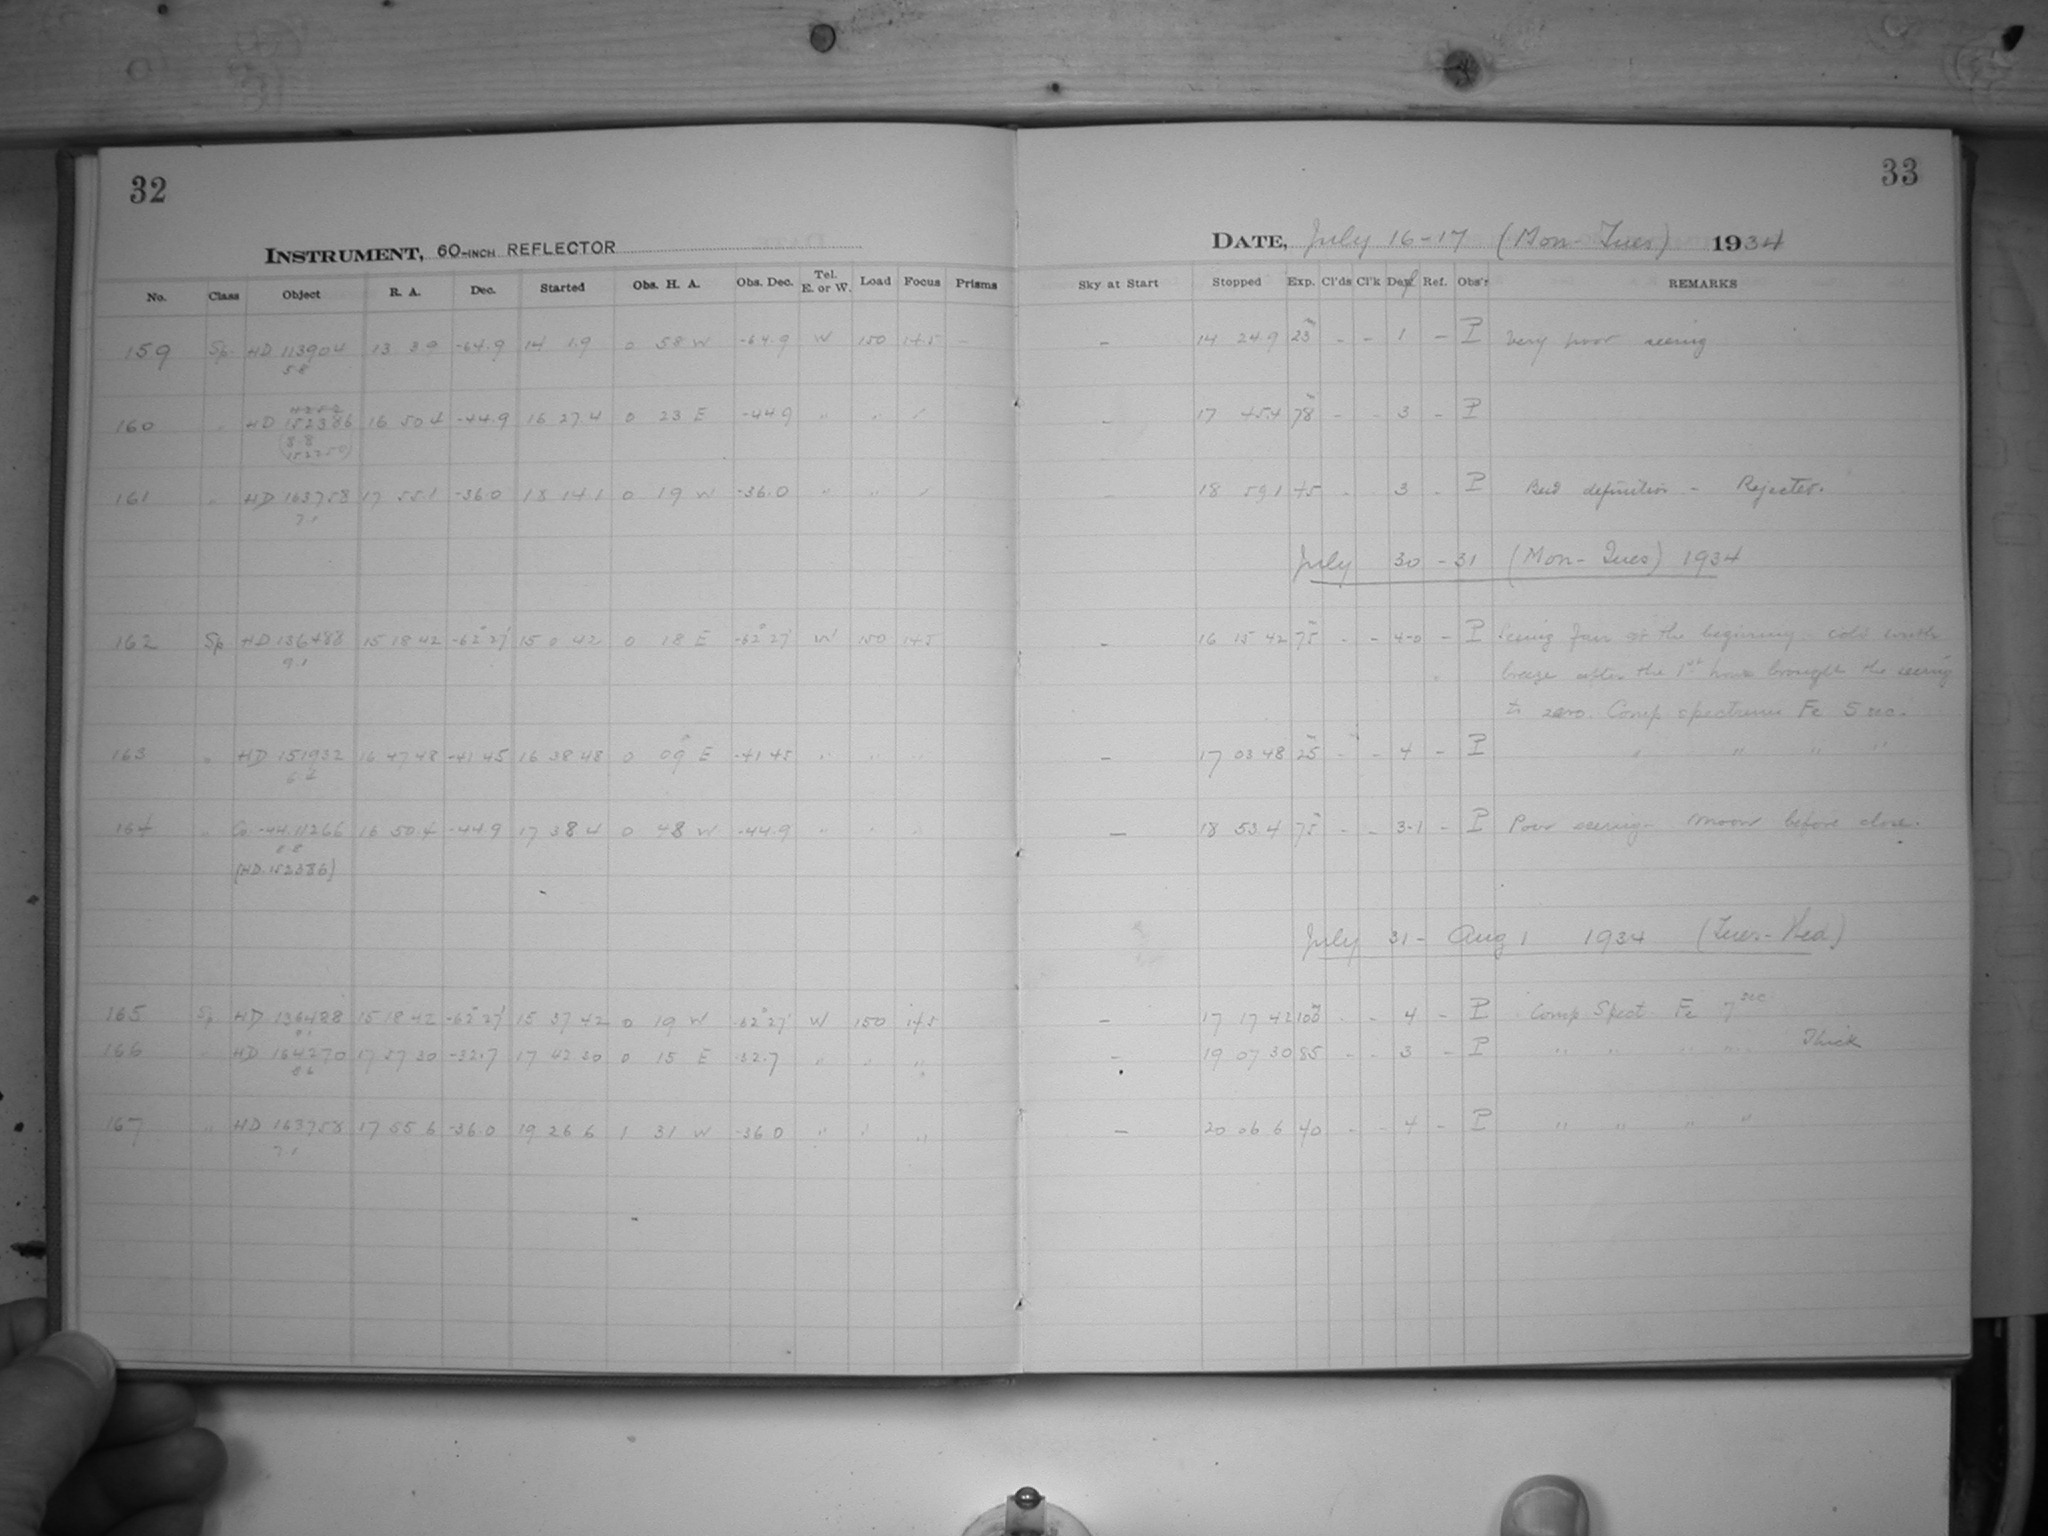 32
33
INSTRUMENT, 60-INCH REFLECTOR
DATE, July 16-17 (Mon-Tues) 1934
No. Class Object R. A. Dec. Started Obs. H. A. Obs. Dec. Tel. E. or W. Load Focus Prisms Sky at Start Stopped Exp. Cl'ds Cl'k Def Ref. Obs'r REMARKS
159 Sp. HD 113904 13 39 -64.9 14 1.9 0 58 W -64.9 W 150 14.5 - - 14 24.9 23m - - 1 - P Very poor seeing
5.8
160 " HD 152386 16 50.4 -44.9 16 27.4 0 23 E -44.9 " " - 17 45.4 78m - - 3 - P
(8.8
161 " HD 163758 17 55.1 -36.0 18 14.1 0 19 W -36.0 " " 18 59.1 45 - 3 - P Bad definition - Rejected.
7.1
July 30-31 (Mon-Tues) 1934
162 Sp HD 136488 15 18 42 -62° 27' 15 0 42 0 18 E -62° 27' W 150 14.5 - 16 15 42 75m - - 4-0 - P Seeing fair at the beginning - cold south
9.1
breeze after the 1st hour brought the seeing
to zero. Comp spectrum Fe 5 sec.
163 " HD 151932 16 47 48 -41 45 16 38 48 0 09 E -41 45 " " " - 17 03 48 25m - - 4 - P " " " "
6.4
164 " Co -44.11266 16 50.4 -44.9 17 38 4 0 48 W -44.9 " " " - 18 53.4 75m - - 3-1 - P Poor seeing - Moon before close.
8.8
(HD 152386)
July 31 - Aug 1 1934 (Tues-Wed)
165 Sp HD 136488 15 18 42 -62° 27' 15 37 42 0 19 W -62° 27' W 150 14.5 - 17 17 42 100m - - 4 - P Comp Spect Fe 7 sec
9.1
166 " HD 164270 17 57 30 -32.7 17 42 30 0 15 E -32.7 " " " - 19 07 30 85 - - 3 - P " " " " Thick
8.6
167 " HD 163758 17 55 6 -36.0 19 26 6 1 31 W -36.0 " " " - 20 06 6 40 - - 4 - P " " " "
7.1